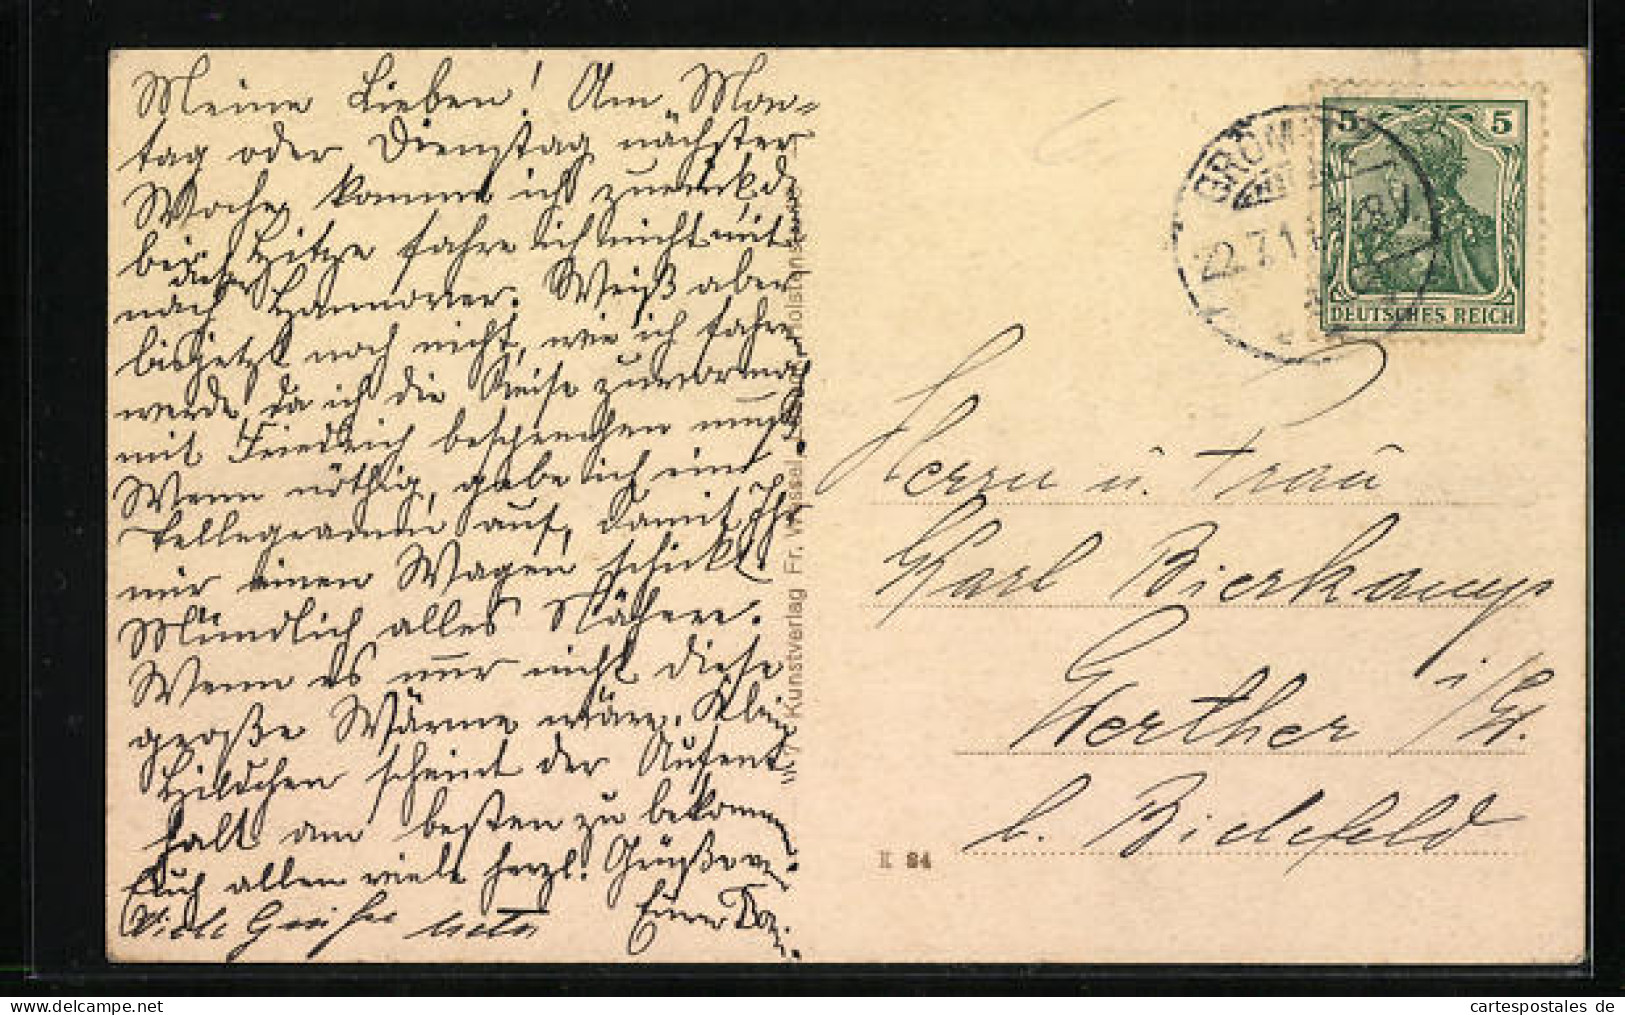 Meine Lieben! Am Mon=
tag oder Dienstag nächster
Woche komme ich zurück, d.
bei der Hitze fahre ich nicht mit
nach Hannover. Weiß aber
bis jetzt noch nicht, wie ich fahre
werde, da ich die Reise zuvor noch
mit Friedrich besprechen muß.
Wenn nöthig, gebe ich eine
Tellegramm auf, damit Ihr
mir einen Wagen schickt.
Mündlich alles Nähere.
Wenn es nur nicht diese
große Wärme wäre. Klein
Hildchen scheint der Aufent
halt am besten zu bekommen
Euch allen viele herzl. Grüße v.
Eurer
Viele Grüße
Kunstverlag Fr. Wessel
Holstenstr.
GRÖM
22.7.1
8 V.
5 5
DEUTSCHES REICH
Herrn u. Frau
Karl Bierkamp
Werther i/W.
b. Bielefeld
K 84
www.oldthing.com
cartespostales de